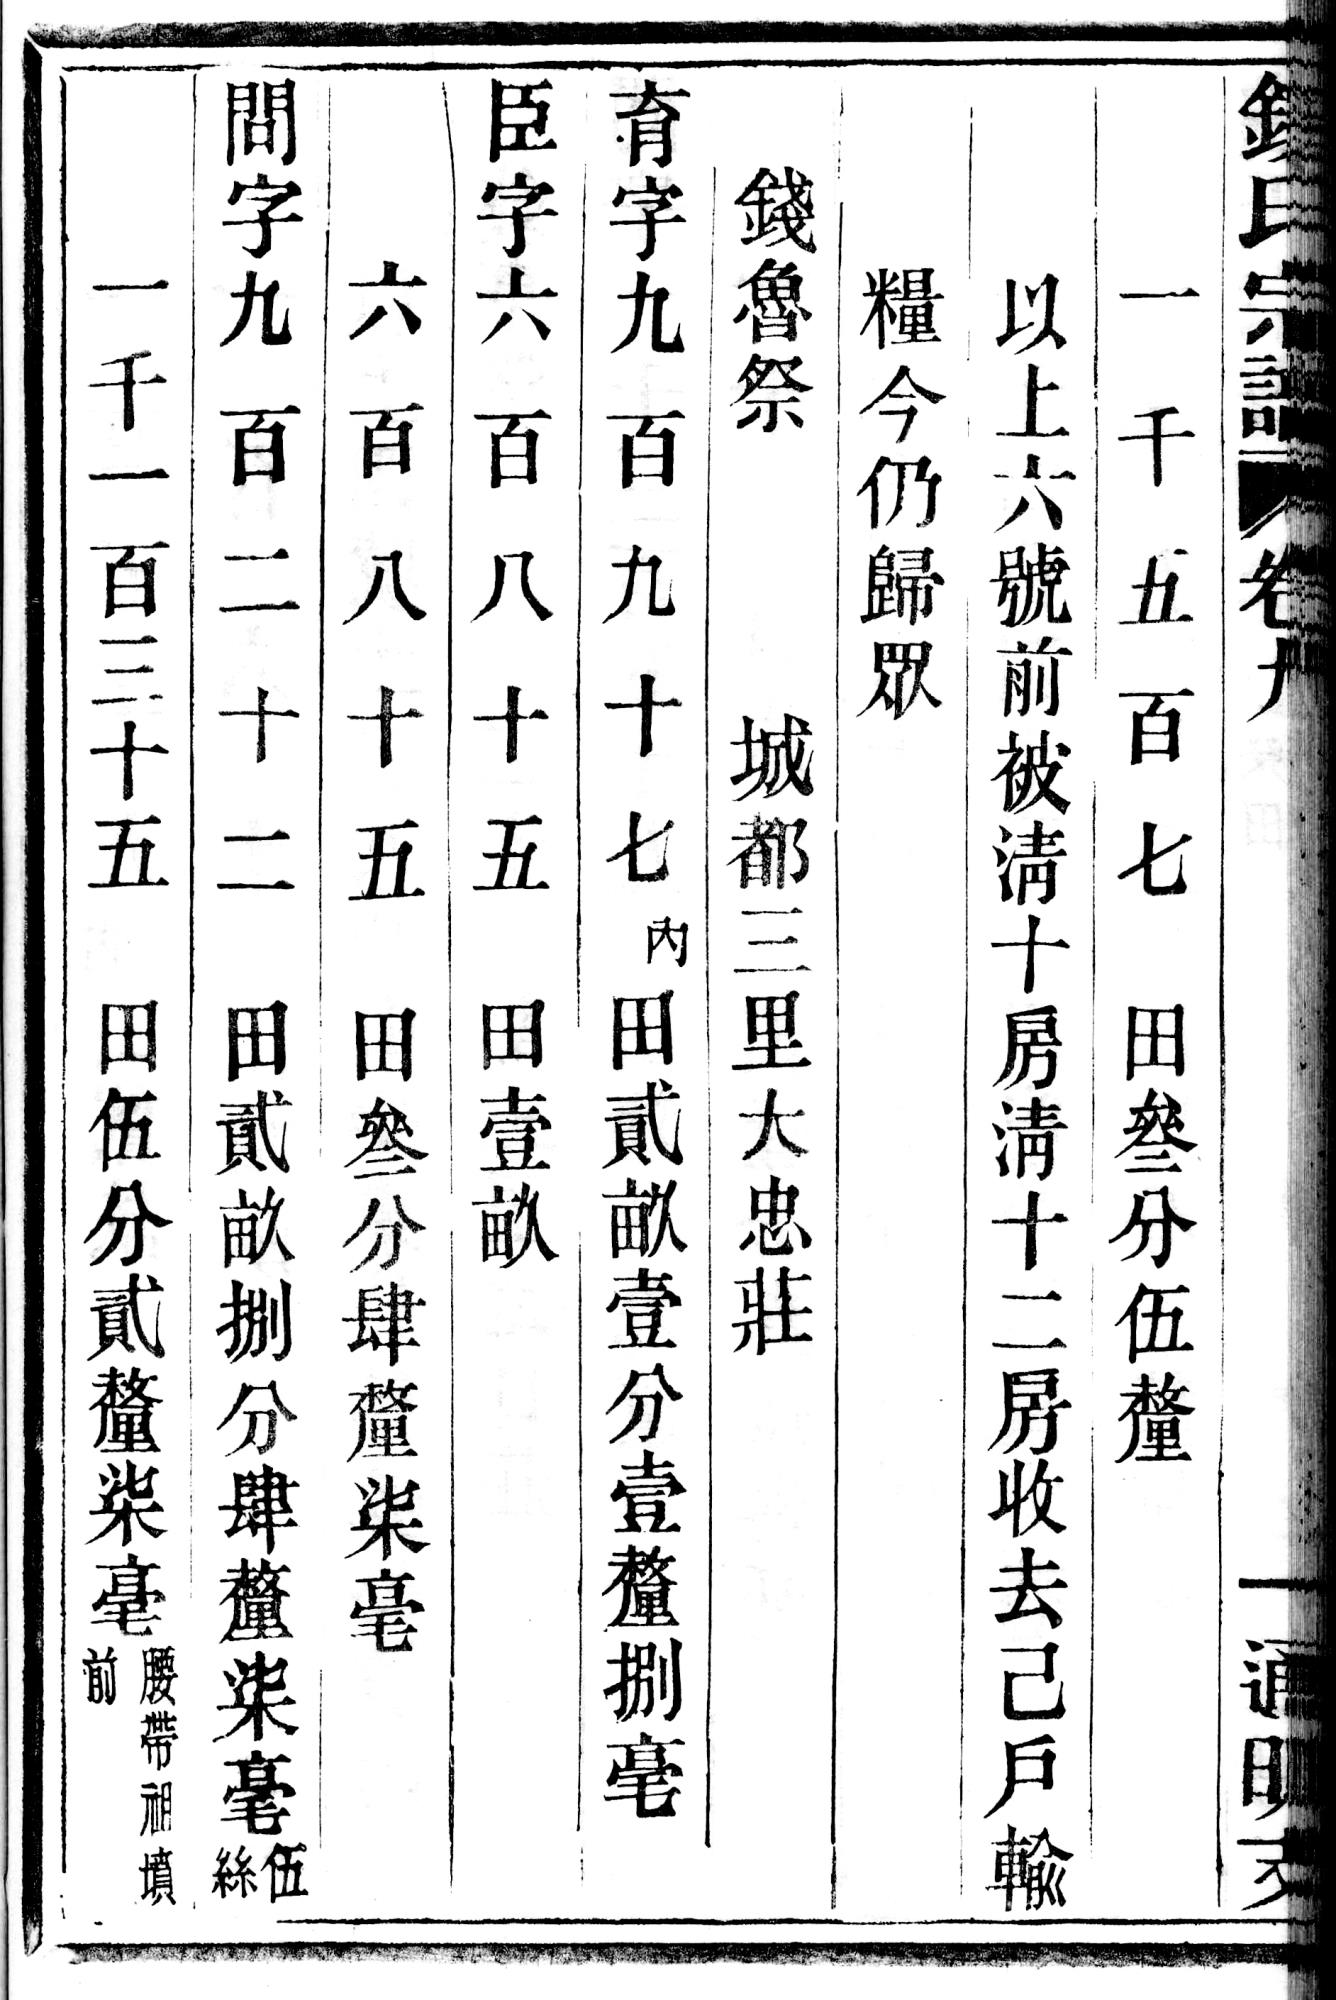 錢氏宗譜 卷九 一 通明支
一千五百七 田叄分伍釐
以上六號前被淸十房淸十二房收去己戶輸
糧今仍歸眾
錢魯祭 城都三里大忠莊
育字九百九十七內田貳畝壹分壹釐捌毫
臣字六百八十五 田壹畝
六百八十五 田叄分肆釐柒毫
問字九百二十二 田貳畝捌分肆釐柒毫伍絲
一千一百三十五 田伍分貳釐柒毫腰帶祖墳前